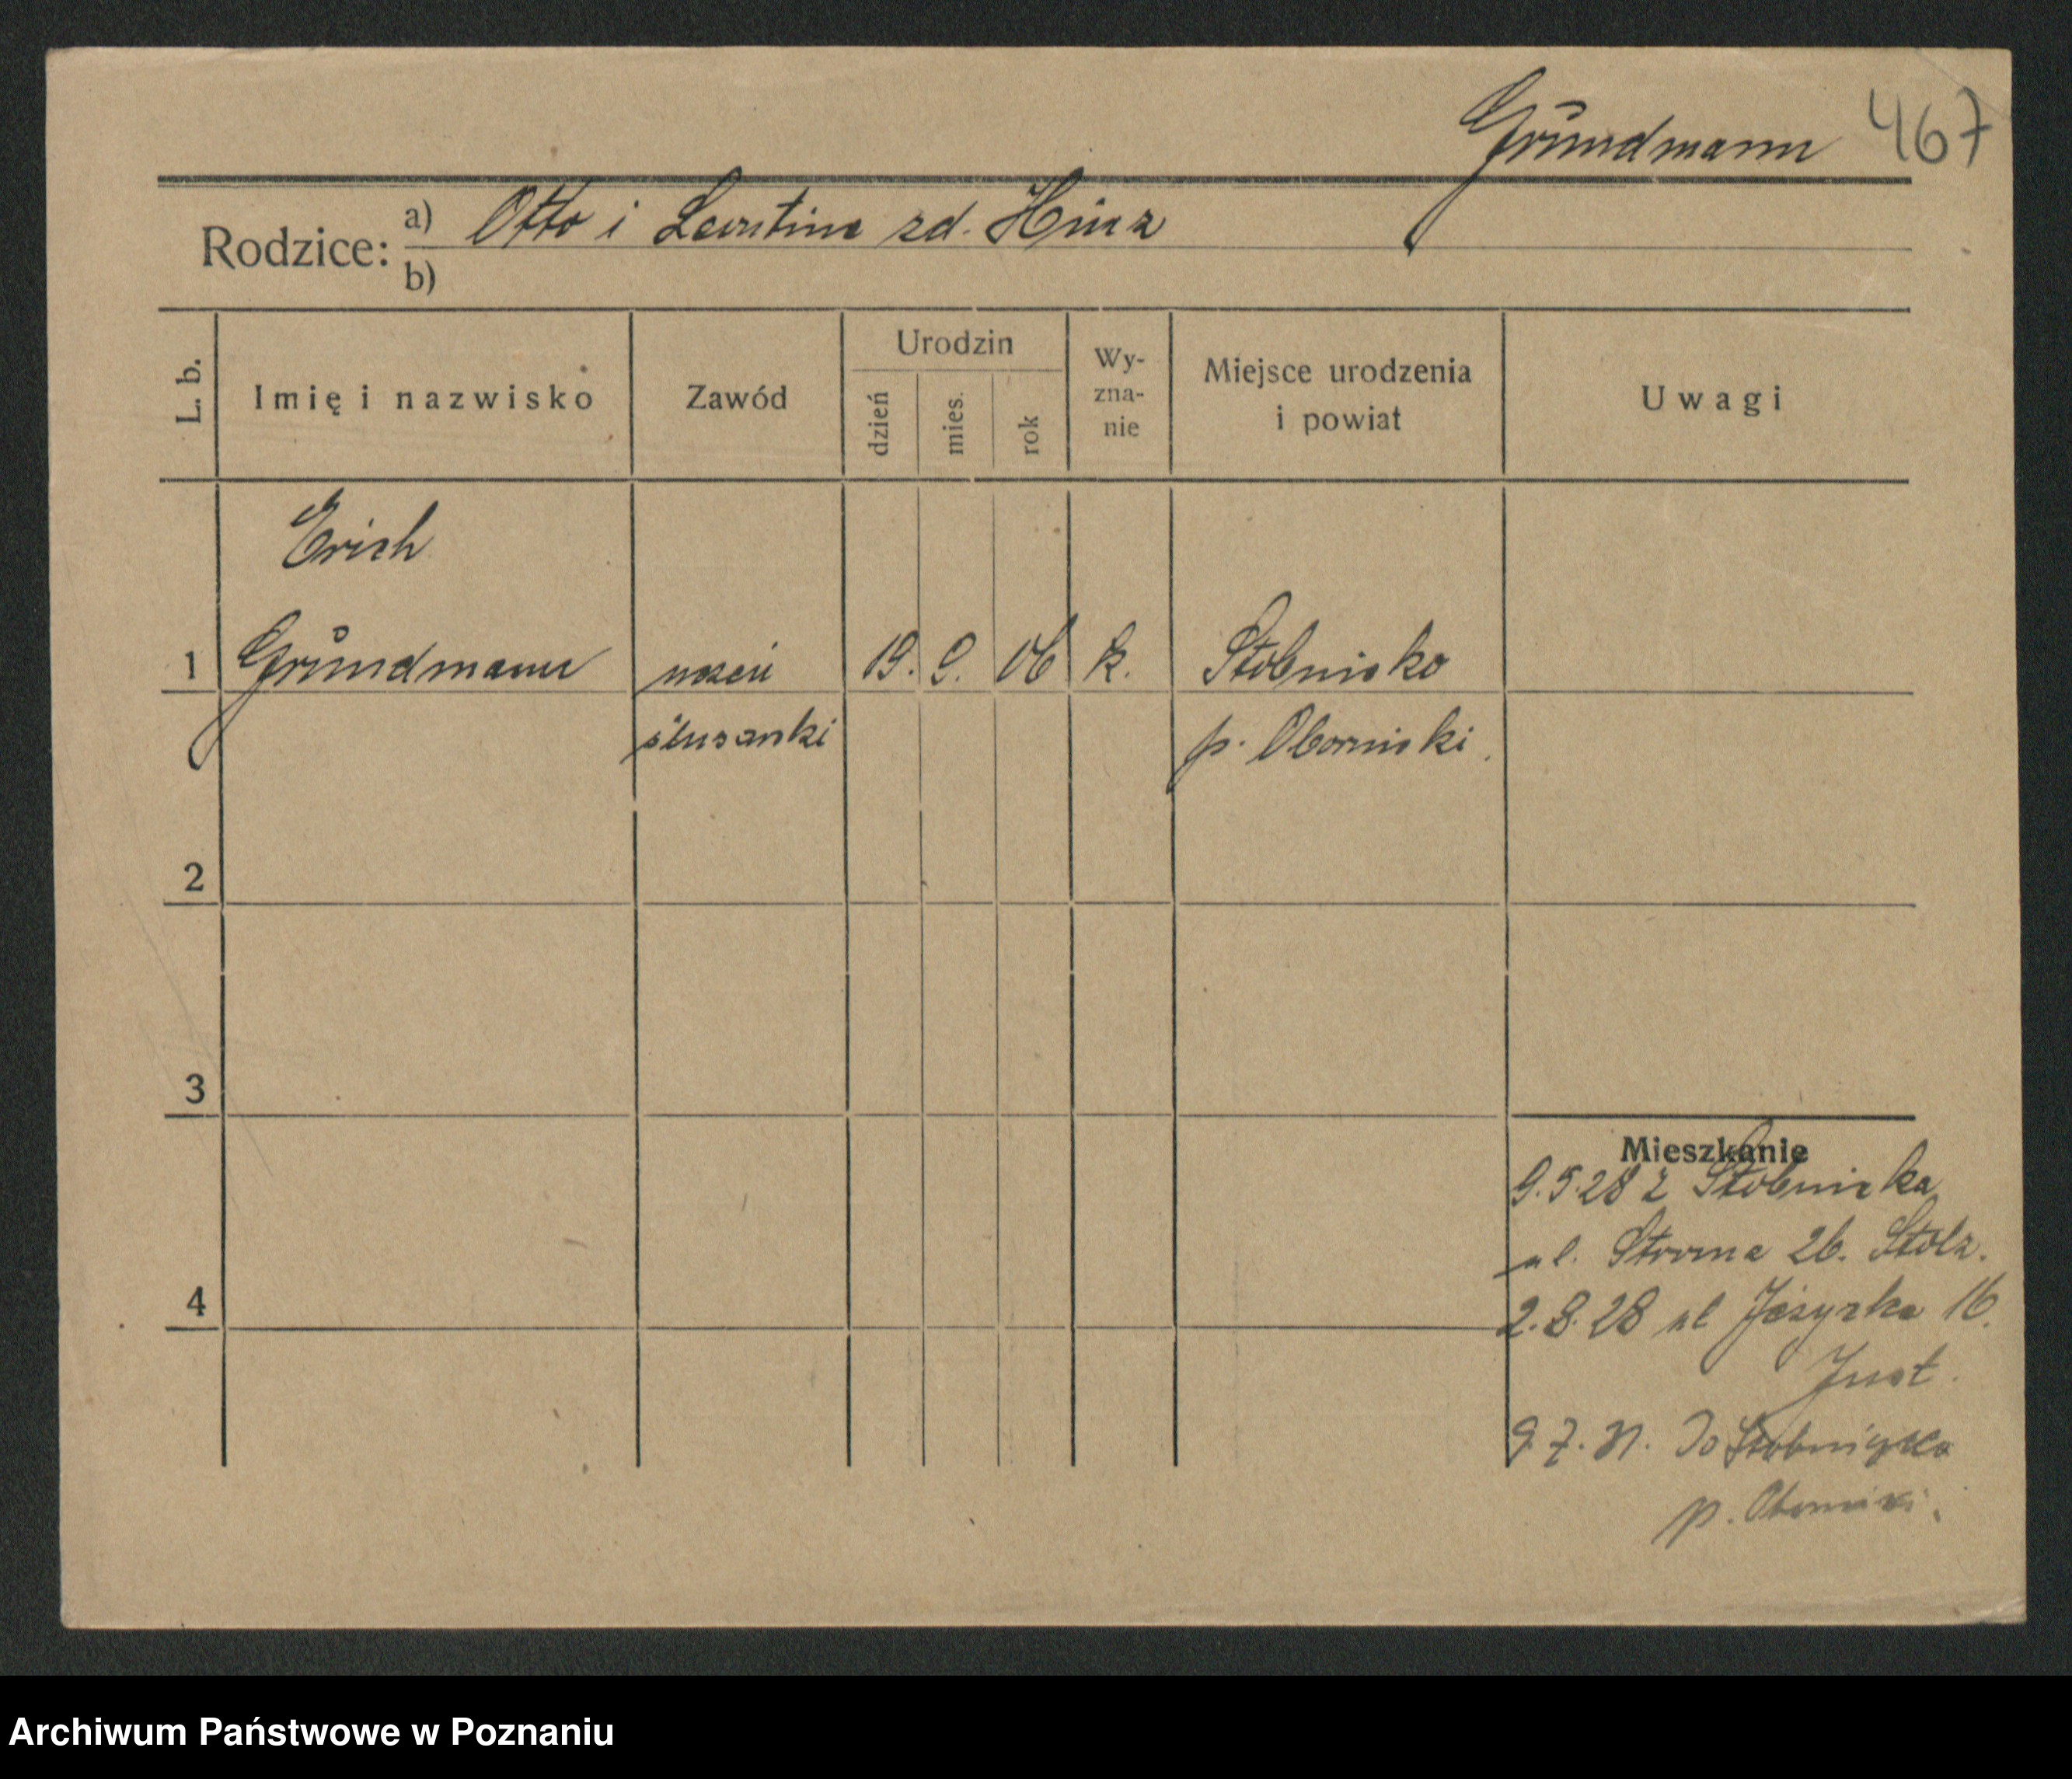 Grŭndmann 467
Rodzice: a) Otto i Leontine zd. Hinz
b)
L. b. Imię i nazwisko Zawód Urodzin dzień mies. rok Wy-zna-nie Miejsce urodzenia i powiat Uwagi
Erich
1 Grŭndmann uczeń 19. 9. 06 k. Stobnicko
ślusarski p. Obornicki
2
3
Mieszkanie
9.5.28 z Stobnicka
ul. Stroma 26. Stolz.
4
2.8.28 ul Jeżycka 16.
Just.
9.7.31. Do
p. Oborniki.
Archiwum Państwowe w Poznaniu